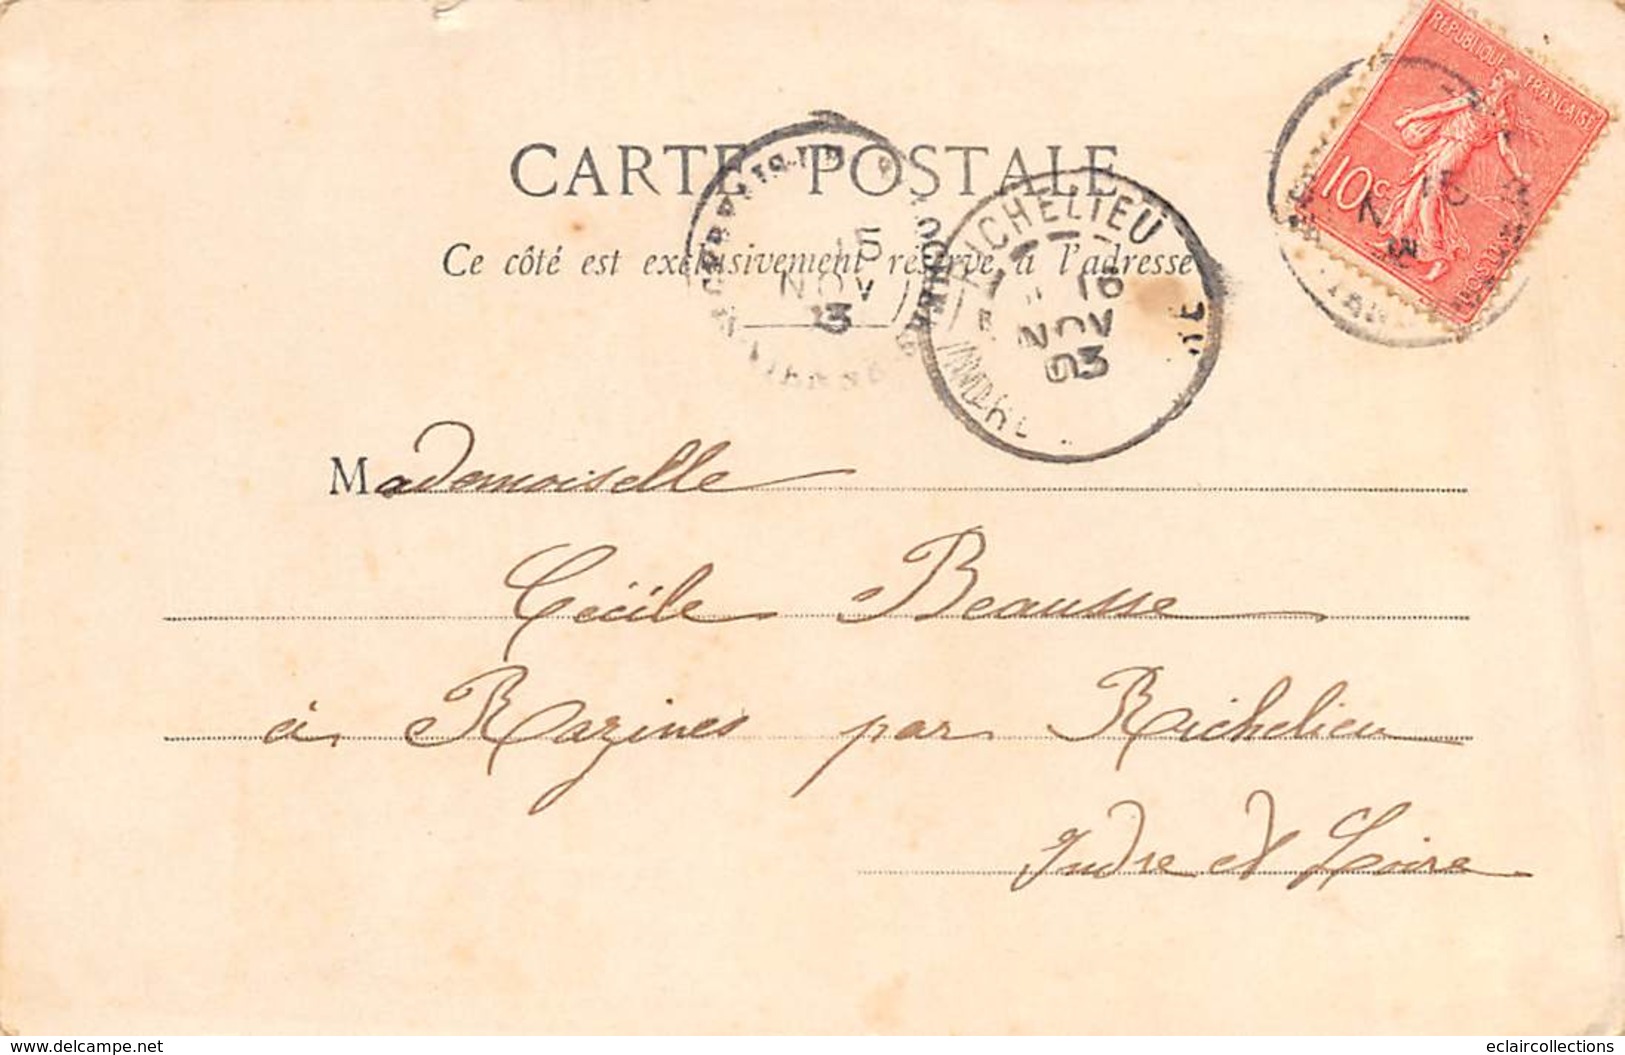 RÉPUBLIQUE FRANÇAISE
10c
CARTE POSTALE
Ce côté est exclusivement réservé à l'adresse
15
NOV
3
RICHELIEU
16
NOV
03
INDRE
15
Mademoiselle
Cécile Beausse
à Razines par Richelieu
Indre et Loire
www.delcampe.net
eclaircollections